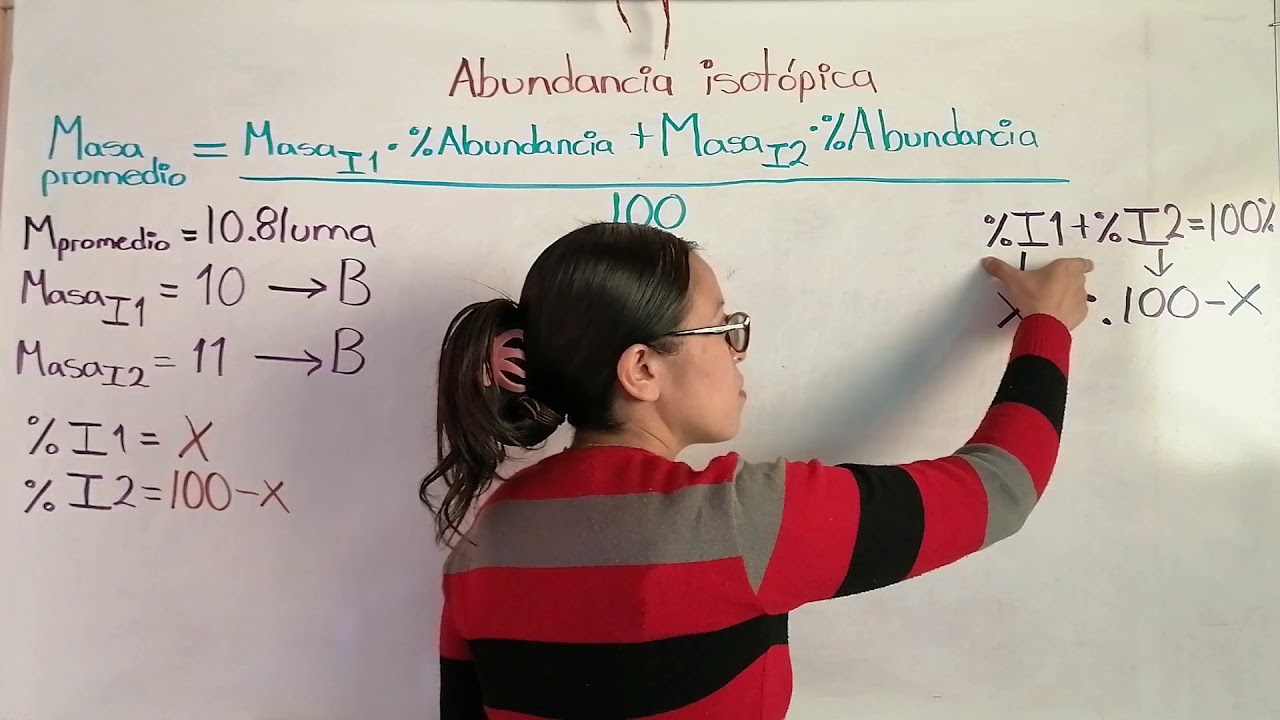 Abundancia isotópica
Masa promedio = Masa I1 · %Abundancia + Masa I2 · %Abundancia
100
Mpromedio = 10.81uma
Masa I1 = 10 → B
Masa I2 = 11 → B
% I1 = X
% I2 = 100-x
%I1+%I2=100%
↓
X .100-X